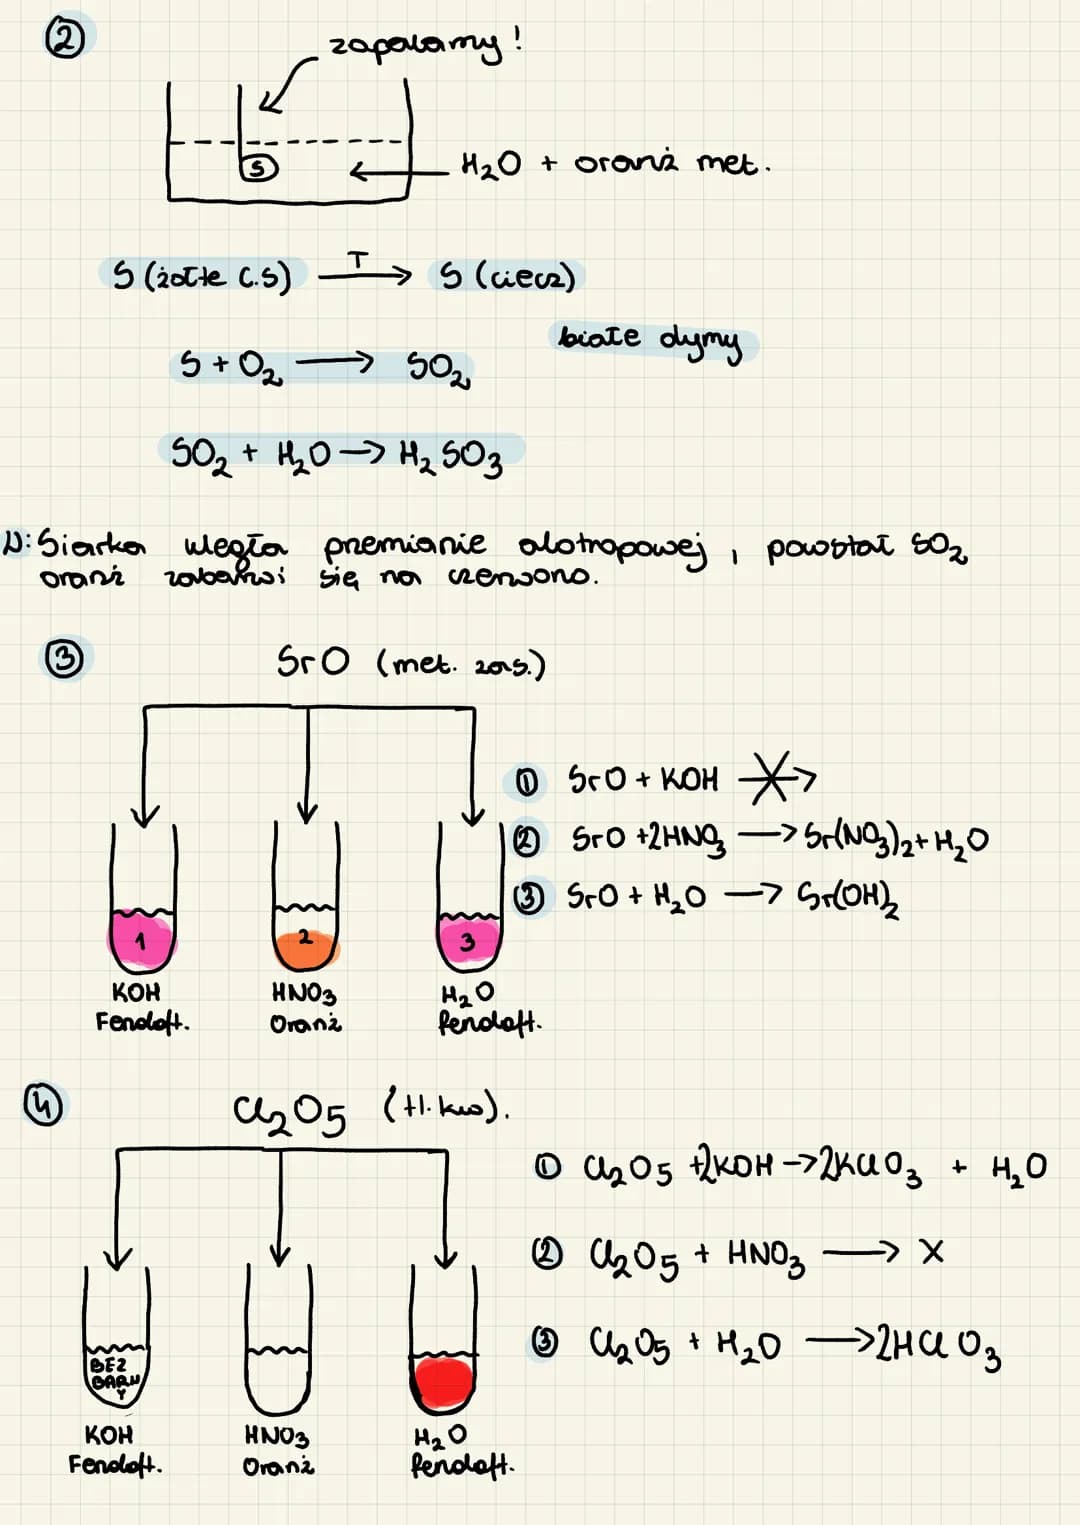 2
zapalamy!
S
H₂O + oranż met.
S (żółte c.s) T→ S (ciecz)
białe dymy
S + O₂ → SO₂
SO₂ + H₂O → H₂SO₃
Siarka uległa przemianie alotropowej, powstał SO₂
oranż zabarwi się na czerwono.
3
SrO (met. zas.)
① SrO + KOH →
② SrO + 2HNO₃ → Sr(NO₃)₂ + H₂O
③ SrO + H₂O → Sr(OH)₂
1 2 3
KOH HNO₃ H₂O
Fenoloft. Oranż fenoloft.
4
Cl₂O₅ (tl. kws).
① Cl₂O₅ + 2KOH → 2KClO₃ + H₂O
② Cl₂O₅ + HNO₃ → X
③ Cl₂O₅ + H₂O → 2HClO₃
BEZ
BARW
Y
KOH HNO₃ H₂O
Fenoloft. Oranż fenoloft.